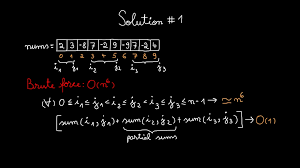 Solution #1
nums= 2 3 -8 7 -2 9 -9 7 -2 4
0 1 2 3 4 5 6 7 8 9
i₁ j₁ i₂ j₂ i₃ j₃
Brute force: O(n⁶)
(∀) 0 ≤ i₁ ≤ j₁ < i₂ ≤ j₂ < i₃ ≤ j₃ ≤ n-1 → ≈ n⁶
[sum(i₁,j₁) + sum(i₂,j₂) + sum(i₃,j₃)] → O(1)
partial sums